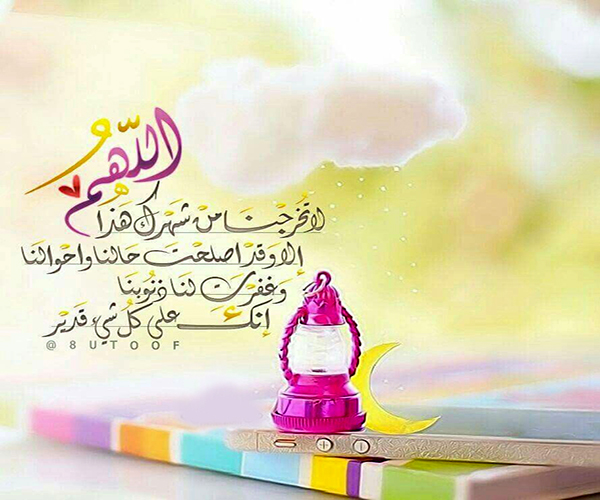 اللهم
لا تخرجنا من شهرك هذا
إلا وقد اصلحت حالنا واحوالنا
وغفرت لنا ذنوبنا
إنك على كل شيء قدير
@8UTOOF